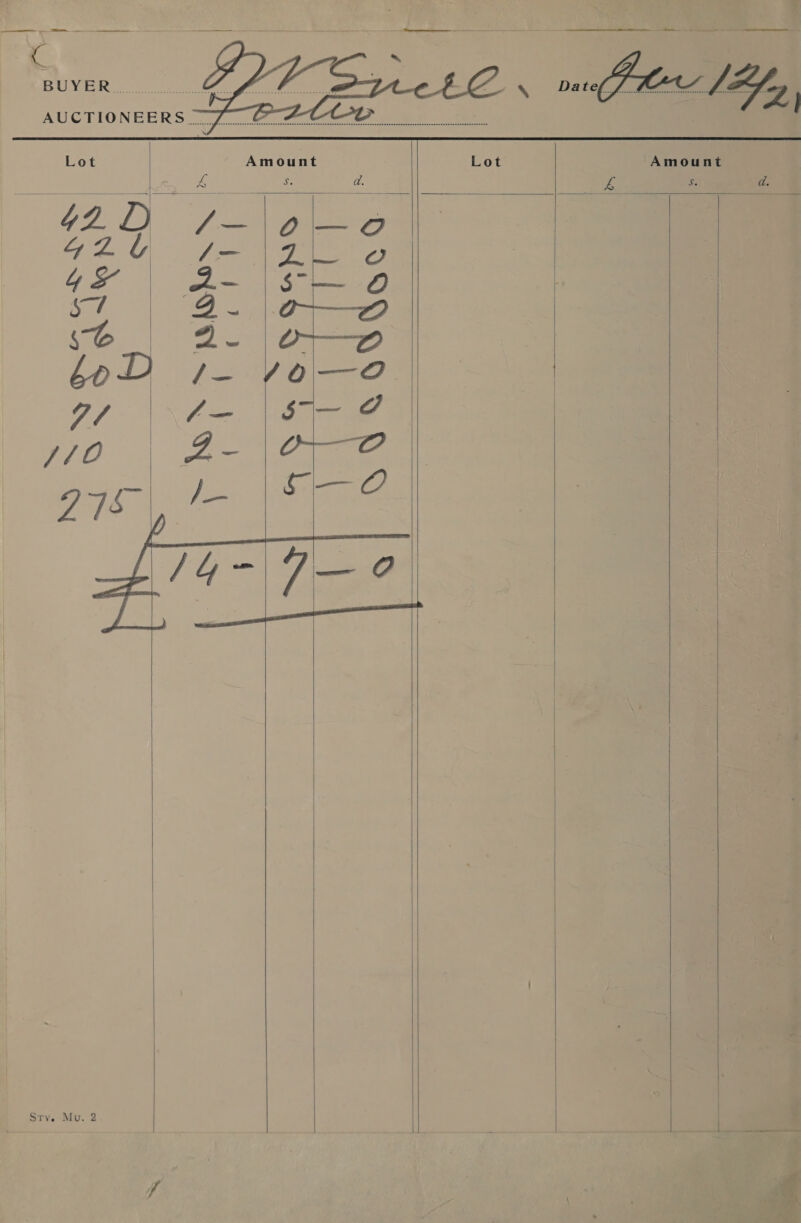 BUYER
Date
AUCTIONEERS
Lot Amount Lot Amount
£ s. d. £ s. d.
42 D 1-0-0
42 1-2-0
48 2-5-0
51 2-0-0
56 2-0-0
60D 1-10-0
71 1-5-0
110 2-0-0
275 1-5-0
£14-7-0
Sry. Mu. 2